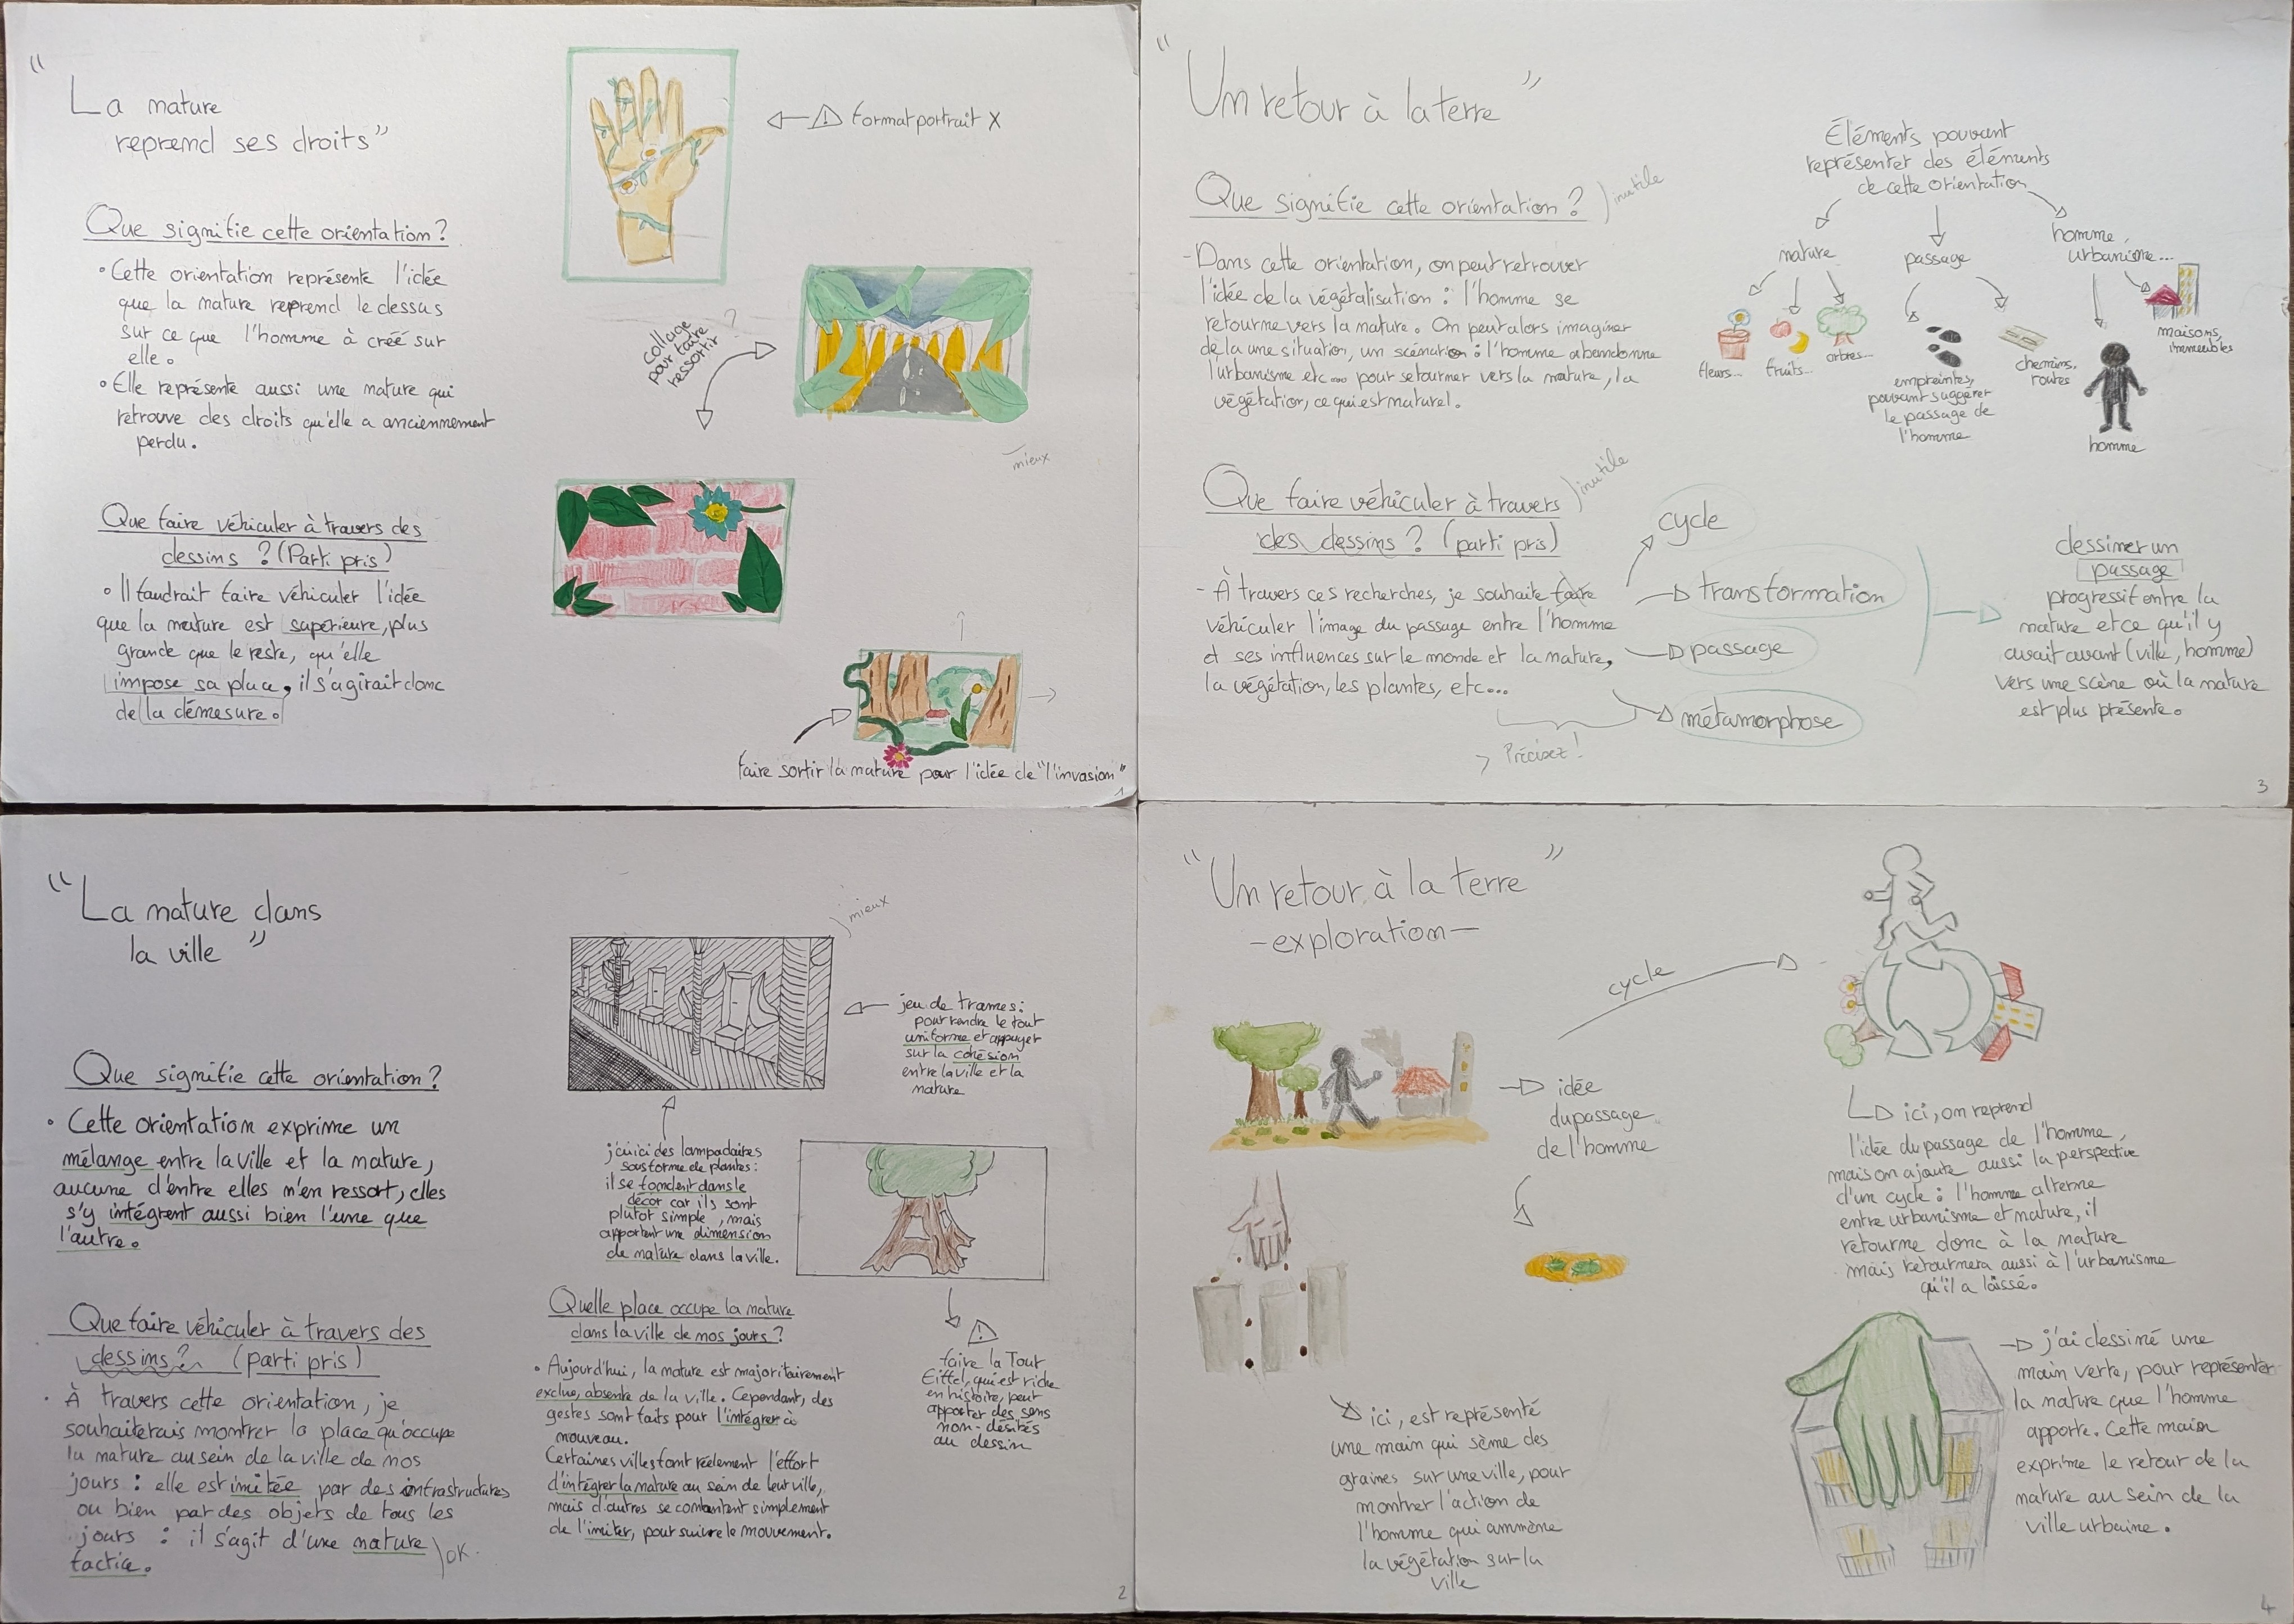 "La nature
reprend ses droits"
Que signifie cette orientation ?
• Cette orientation représente l'idée
que la nature reprend le dessus
sur ce que l'homme à créé sur
elle.
• Elle représente aussi une nature qui
retrouve des droits qu'elle a anciennement
perdu.
Que faire véhiculer à travers des
dessins ? (Parti pris)
• Il faudrait faire véhiculer l'idée
que la nature est supérieure, plus
grande que le reste, qu'elle
impose sa place, il s'agirait donc
de la démesure.
⚠ format portrait X
collage
pour faire
ressortir ?
mieux
faire sortir la nature pour l'idée de "l'invasion"
1
"Un retour à la terre"
Que signifie cette orientation ?
inutile
- Dans cette orientation, on peut retrouver
l'idée de la végétalisation : l'homme se
retourne vers la nature. On peut alors imaginer
de la une situation, un scénario : l'homme abandonne
l'urbanisme etc... pour se tourner vers la nature, la
végétation, ce qui est naturel.
Que faire véhiculer à travers
des dessins ? (parti pris)
inutile
- À travers ces recherches, je souhaite faire
véhiculer l'image du passage entre l'homme
et ses influences sur le monde et la nature,
la végétation, les plantes, etc...
> Précisez !
cycle
transformation
passage
métamorphose
dessiner un
passage
progressif entre la
nature et ce qu'il y
avait avant (ville, homme)
vers une scène où la nature
est plus présente.
Éléments pouvant
représenter des éléments
de cette orientation
nature
fleurs...
fruits...
arbres...
passage
empreintes,
pouvant suggérer
le passage de
l'homme
chemins,
routes
homme,
urbanisme...
homme
maisons,
immeubles
3
"La nature dans
la ville"
Que signifie cette orientation ?
• Cette orientation exprime un
mélange entre la ville et la nature,
aucune d'entre elles n'en ressort, elles
s'y intégrent aussi bien l'une que
l'autre.
Que faire véhiculer à travers des
dessins ? (parti pris)
• À travers cette orientation, je
souhaiterais montrer la place qu'occupe
la nature au sein de la ville de nos
jours : elle est imitée par des infrastructures
ou bien par des objets de tous les
jours : il s'agit d'une nature
factice.
OK.
mieux
jeu de trames :
pour rendre le tout
uniforme et appuyer
sur la cohésion
entre la ville et la
nature
j'ai ici des lampadaires
sous forme de plantes :
il se fondent dans le
décor car ils sont
plutôt simple, mais
apportent une dimension
de nature dans la ville.
Quelle place occupe la nature
dans la ville de nos jours ?
• Aujourd'hui, la nature est majoritairement
exclue, absente de la ville. Cependant, des
gestes sont faits pour l'intégrer à
nouveau.
Certaines villes font réelement l'effort
d'intégrer la nature au sein de leur ville,
mais d'autres se contentent simplement
de l'imiter, pour suivre le mouvement.
⚠
faire la Tout
Eiffel, qui est riche
en histoire, peut
apporter des sens
non-désirés
au dessin
2
"Un retour à la terre"
- exploration -
cycle
idée
du passage
de l'homme
ici, on reprend
l'idée du passage de l'homme,
mais on ajoute aussi la perspective
d'un cycle : l'homme alterne
entre urbanisme et nature, il
retourne donc à la nature
mais retournera aussi à l'urbanisme
qu'il a laissé.
ici, est représenté
une main qui sème des
graines sur une ville, pour
montrer l'action de
l'homme qui ammène
la végétation sur la
ville
j'ai dessiné une
main verte, pour représenter
la nature que l'homme
apporte. Cette main
exprime le retour de la
nature au sein de la
ville urbaine.
4